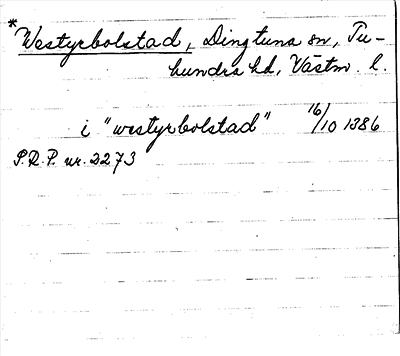 *Westyrbolstad, Dingtuna sn, Tu-
hundra hd, Västm. l.
i "westyrbolstad" 16/10 1386
S.R.P. nr. 2273